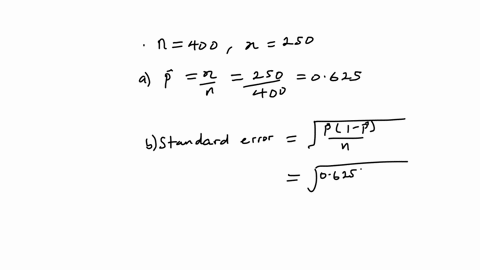 . n = 400 , x = 250
a) p̂ = x/n = 250/400 = 0.625
b) Standard error = √(p̂(1-p̂)/n)
= √(0.625.